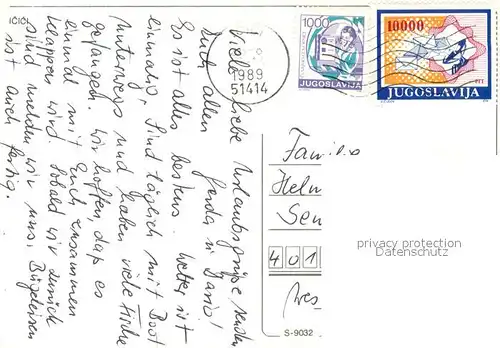 IČIĆI
1989
51414
1000
JUGOSLAVIJA
10000
PTT
JUGOSLAVIJA
Viele liebe Urlaubsgrüße senden
Euch allen Gerda u. Mario!
Es ist alles bestens. Wetter ist
einmalig, sind täglich mit Boot
unterwegs und haben viele Fische
gefangen. Wir hoffen daß es
einmal mit Euch zusammen
klappen wird. Sobald wir zurück
sind melden wir uns.
ist auch fertig.
Familie
Helm
Sen
401
Wes
privacy protection
Datenschutz
S-9032